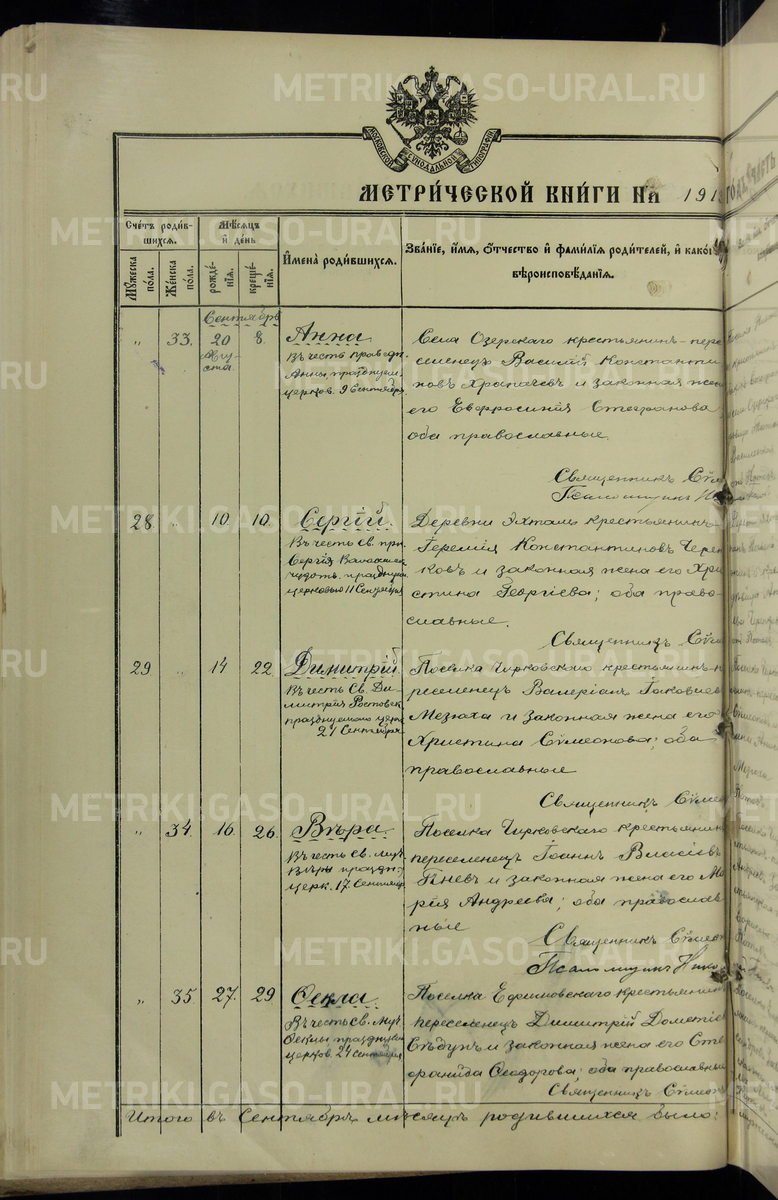 METRIKI.GASO-URAL.RU
МОСКОВСКОЙ СѴНОДАЛЬНОЙ ТИПОГРАФІИ
МЕТРИ́ЧЕСКОЙ КНИ́ГИ НА 191
Счетъ роди́в-
шихся.
Мѣ́сяцъ
и҆ де́нь
И҆мена̀ роди́вшихся.
Зва́нїе, и҆́мя, ѻ҆́тчество и҆ фами́лїя роди́телей, и҆ како́гѡ
вѣроисповѣ́данїя.
Мꙋ́жеска
пола.
Же́нска
пола.
рожде́-
нїя.
креще́-
нїя.
Сентябрь
„ 33. 20 8. Анна
Авгу-
ста.
въ честь прав. 
Анны, празднуем.
церков. 9 Сентября
Села Озерскаго крестьянинъ-пере
селенецъ Василій Константи
новъ Храпачевъ и законная жен
его Евфросинія Стефанова
оба православные.
Священникъ Сѵм
Псаломщикъ Ни
28 „ 10. 10. Сергій.
Въ честь св. прп.
Сергія Валаамск.
чудотв. праздну
церковью 11 Сентября
Деревни крестьянинъ
Іеремія Константиновъ Черен
ковъ и законная жена его Хри
стина Георгіева; оба право-
славные.
Священникъ Сѵм
29 „ 14 22. Димитрій
Въ честь Св. Ди-
митрія Ростовск.
празднуемаго церк
21 Сентября
Поселка Чирковскаго крестьянинъ-п
реселенецъ Валеріанъ Іаковлев
Мезюха и законная жена его
Христина Сѵмеонова; оба
православные
Священникъ Сѵмео
„ 34. 16. 26. Вѣра.
Въ честь Св. муч
Вѣры праздн.
церк. 17. Сентября
Поселка Чирковскаго крестьянин
переселенецъ Іоаннъ Власіевъ
Гневъ и законная жена его Ма
рія Андреева; оба православ
ные
Священникъ Сѵмеон
Псаломщикъ Нико
„ 35. 27. 29 Ѳекла.
Въ честь св. муч
Ѳеклы празднуем
церков. 24 Сентября
Поселка Ефимовскаго крестьянин
переселенецъ Димитрій Дометіе
Сѣдунъ и законная жена его Сте
фанида Ѳеодорова; оба православны
Священникъ Сѵмеон
Итого въ Сентябрѣ мѣсяцѣ родившихся было: